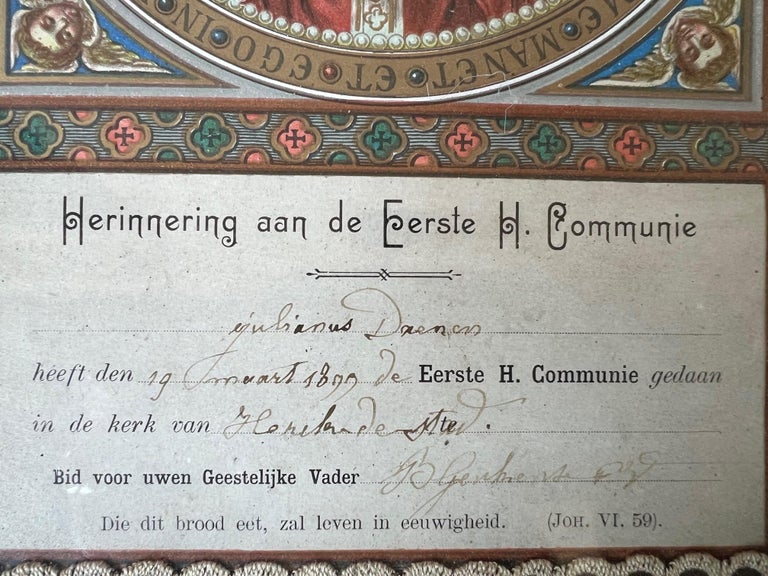 ME MANET ET EGO IN
Herinnering aan de Eerste H. Communie
julianus Daenen
heeft den 19 maart 1899 de Eerste H. Communie gedaan
in de kerk van Herck-de-stad.
Bid voor uwen Geestelijke Vader
Die dit brood eet, zal leven in eeuwigheid. (JOH. VI. 59).